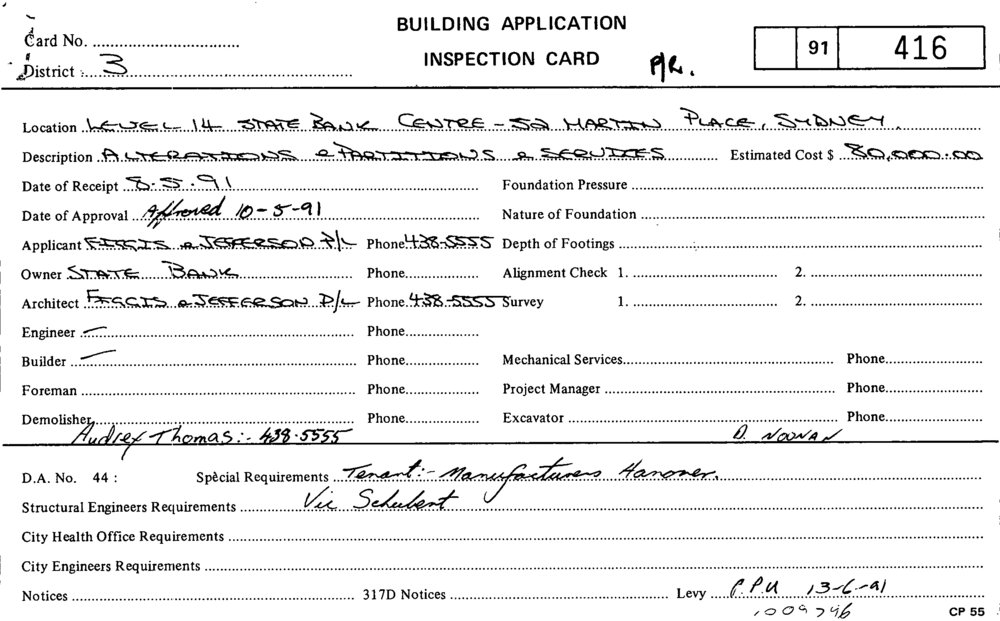 BUILDING APPLICATION
INSPECTION CARD
Card No.
District 3
P/R.
91 416
Location LEVEL 14 STATE BANK CENTRE - 52 MARTIN PLACE, SYDNEY.
Description ALTERATIONS & PARTITIONS & SERVICES Estimated Cost $ 80,000.00
Date of Receipt 8.5.91 Foundation Pressure
Date of Approval Approved 10-5-91 Nature of Foundation
Applicant FIGGIS & JEFFERSON P/L Phone 438-5555 Depth of Footings
Owner STATE BANK Phone Alignment Check 1. 2.
Architect FIGGIS & JEFFERSON P/L Phone 438-5555 Survey 1. 2.
Engineer — Phone
Builder — Phone Mechanical Services Phone
Foreman Phone Project Manager Phone
Demolisher Phone Excavator Phone
Audrey Thomas:- 438-5555 D. NOONAN
D.A. No. 44 : Special Requirements Tenant:- Manufacturers Hanover.
Structural Engineers Requirements Vic Schubert
City Health Office Requirements
City Engineers Requirements
Notices 317D Notices Levy P.P.U 13-6-91
1009746
CP 55